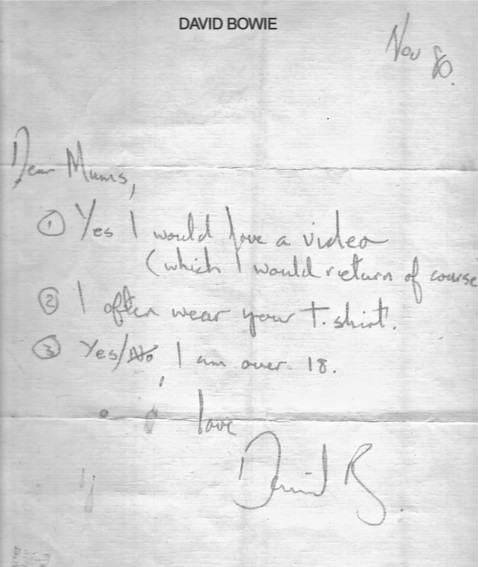 DAVID BOWIE
Nov 80.
Dear Mums,
① Yes I would love a video
(which I would return of course
② I often wear your T. shirt.
③ Yes/No, I am over 18.
love
David B.